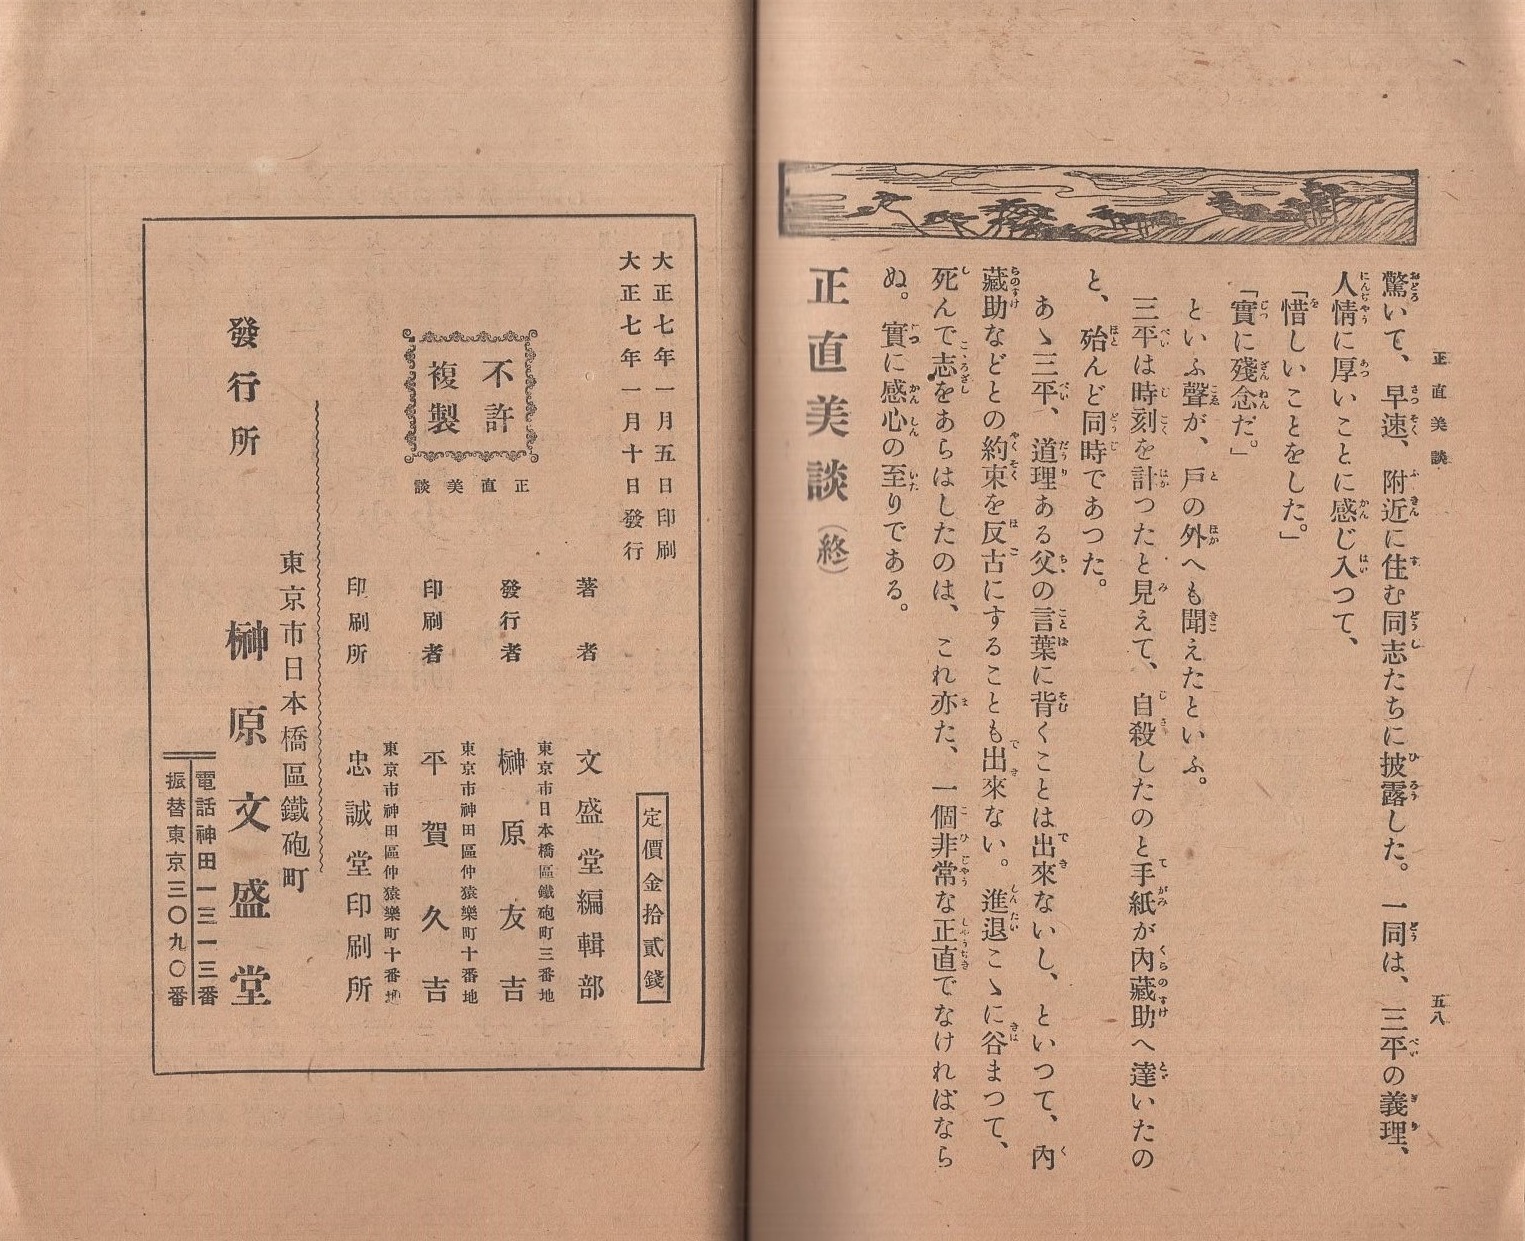 正直美談
五八
驚いて、早速、附近に住む同志たちに披露した。一同は、三平の義理、
人情に厚いことに感じ入つて、
「惜しいことをした。」
「實に殘念だ。」
といふ聲が、戸の外へも聞えたといふ。
三平は時刻を計つたと見えて、自殺したのと手紙が內藏助へ達いたの
と、殆んど同時であつた。
あゝ三平、道理ある父の言葉に背くことは出來ないし、といつて、內
藏助などとの約束を反古にすることも出來ない。進退こゝに谷まつて、
死んで志をあらはしたのは、これ亦た、一個非常な正直でなければなら
ぬ。實に感心の至りである。
正直美談(終)
大正七年一月五日印刷
大正七年一月十日發行
定價金拾貳錢
不許
複製
正直美談
著者 文盛堂編輯部
東京市日本橋區鐵砲町三番地
發行者 榊原友吉
東京市神田區仲猿樂町十番地
印刷者 平賀久吉
東京市神田區仲猿樂町十番地
印刷所 忠誠堂印刷所
東京市日本橋區鐵砲町
發行所 榊原文盛堂
電話神田一三一三番
振替東京三〇九〇番